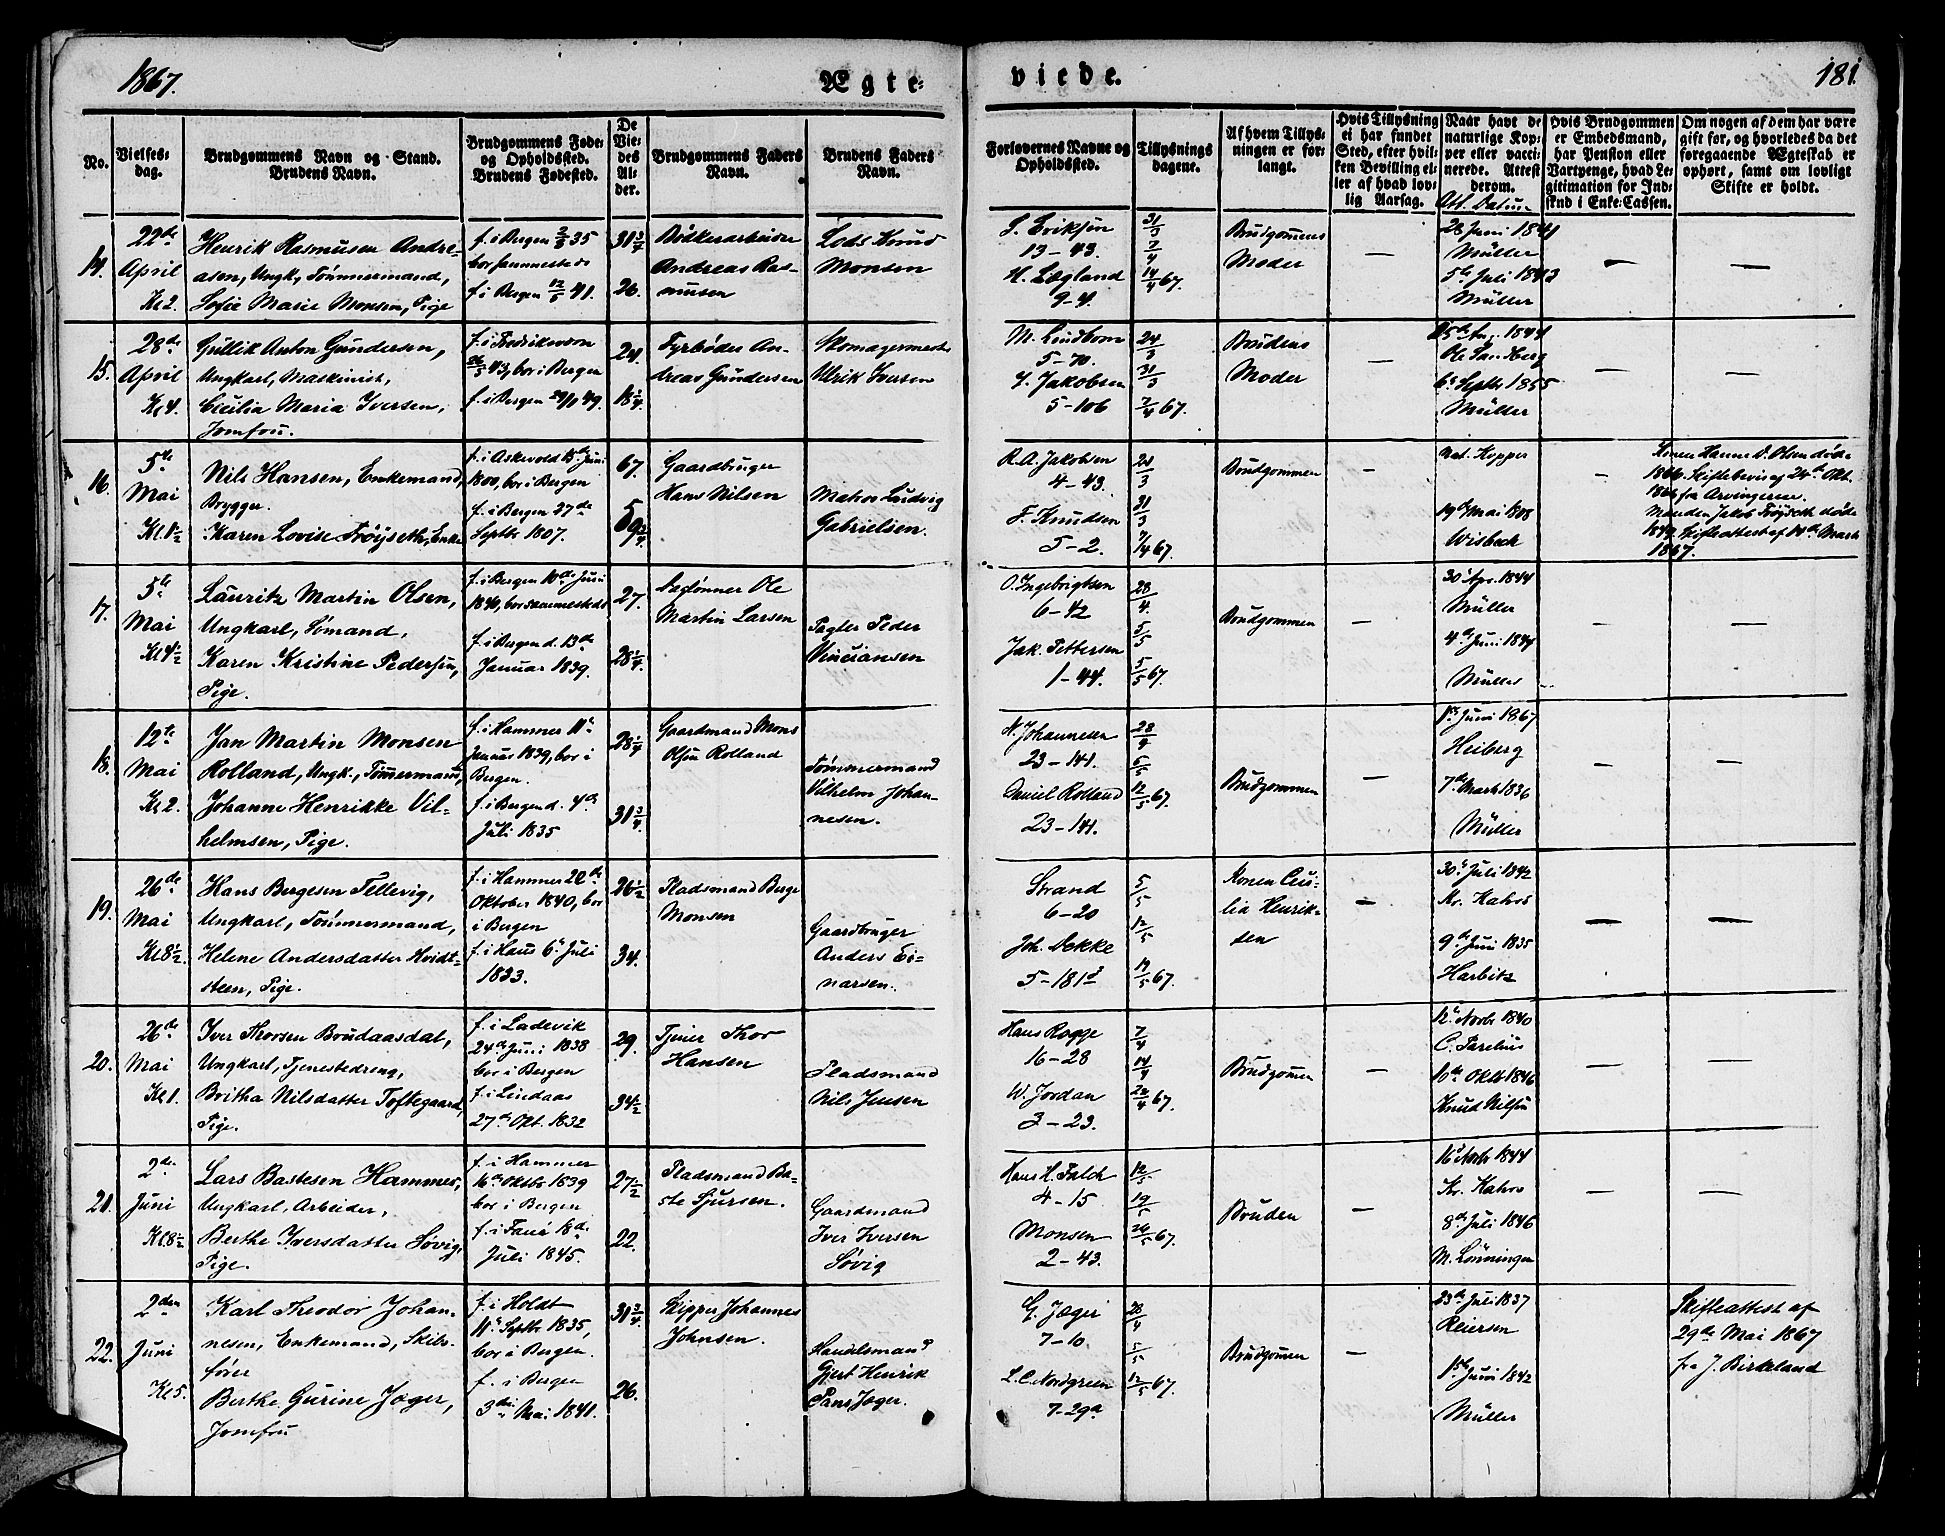 1867.
Ægte-
viede.
181
No.
Vielses-
dag.
Brudgommens Navn og Stand.
Brudens Navn.
Brudgommens Føde-
og Opholdssted.
Brudens Fødested.
De
Vie-
des
Al-
der.
Brudgommens Faders
Navn.
Brudens Faders
Navn.
Forlovernes Navne og
Opholdssted.
Tillysnings
dagene.
Af hvem Tillys-
ningen er for-
langt.
Hvis Tillysning
ei har fundet
Sted, efter hvil-
ken Bevilling el-
ler af hvad lov-
lig Aarsag.
Naar havt de
naturlige Kop-
per eller vacci-
nerede. Attest
derom.
Att. Datum
Hvis Brudgommen
er Embedsmand,
har Pension eller
Vartpenge, hvad Le-
gitimation for Ind-
skud i Enke-Cassen.
Om nogen af dem har være
gift før, og hvorledes da det
foregaaende Ægteskab er
ophørt, samt om lovligt
Skifte er holdt.
14.
22de
April
Kl 2.
Henrik Rasmusen Andre-
asen, Ungk., Tömmermand,
Sofie Marie Monsen, Pige
f. i Bergen 2/8 35
bor sammesteds
f. i Bergen 12/5 41.
31 3/4
26.
Bödkerarbeider
Andreas Ras-
musen
Lods Knud
Monsen
S. Eriksen
13-43.
H. Lægland
9-4.
31/3
7/4
14/4 67.
Brudgommens
Moder
—
28 Juni 1841
Müller
5te Juli 1843
Müller
—
—
15.
28de
April
Kl 4.
Gullik Anton Gundersen,
Ungkarl, Maskinist,
Cecilia Maria Iversen,
Jomfru.
f. i Fredriksværn
26/5 43, bor i Bergen
f. i Bergen 29/1 49.
24
18 1/4
Fyrbøder An-
dreas Gundersen
Skomagermester
Ulrik Iversen
M. Lindbom
5-70.
J. Jakobsen
5-106
24/3
31/3
7/4 67.
Brudens
Moder
—
25de Aug. 1844
Ole Sandberg
6te Septbr 1855
Müller
—
—
16.
5te
Mai
Kl. 1 1/2
Nils Hansen, Enkemand,
Brygger.
Karen Lovise Frøyseth, Enke
f. i Askevold 15de Juni
1800, bor i Bergen
f. i Bergen 27de
Septbr 1807.
67.
59 3/4
Gaardbruger
Hans Nilsen
Matros Ludvig
Gabrielsen.
R. A. Jakobsen
4-43.
F. Knudsen
5-2.
24/3
31/3
7/4 67.
Brudgommen
—
nat. Kopper
19de Mai 1808
Wisbech
—
Konen Hanne D. Olsen døde
1866. Skiftebevis af 24de Okt.
1866 fra Arvingerne.
Manden Jakob Frøyseth døde
1849. Skifteattest af 14de Marts
1867.
17.
5te
Mai
Kl 4 1/2
Lauritz Martin Olsen,
Ungkarl, Sömand,
Karen Kristine Pedersen,
Pige.
f. i Bergen 10de Juni
1840, bor sammesteds
f. i Bergen d. 13de
Januar 1839.
27.
28 1/4.
Ole
Martin Larsen
Pagter Peder
Vinciansen
O. Ingebrigtsen
6-42
Jak. Pettersen
1-44.
28/4.
5/5
5/5 67.
Brudgommen
—
30te Apr. 1844
Müller
4de Juni 1844
Müller
—
—
18.
12te
Mai
Kl 2.
Jan Martin Monsen
Rolland, Ungk., Tömmermand,
Johanne Henrikke Vil-
helmsen, Pige.
f. i Hammer 11te
Januar 1839, bor i
Bergen.
f. i Bergen d. 4de
Juli 1835
28 1/4
31 3/4.
Gaardmand Mons
Olsen Rolland
Tömmermand
Vilhelm Johan-
nesen.
N. Johannesen
23-141.
Daniel Rolland
23-141.
28/4
5/5
12/5 67.
Brudgommen
—
1ste Juni 1867
Heiberg
7de Marts 1836
Müller
—
—
19.
26de
Mai
Kl 8 1/2.
Hans Bergesen Tellevig,
Ungkarl, Tömmermand,
Helene Andersdatter Hvidt-
steen, Pige.
f. i Hammer 22de
Oktober 1840, bor
i Bergen
f. i Haus 6te Juli
1833.
26 1/2
34.
Pladsmand Berge
Monsen
Gaardbruger
Anders Ei-
narsen.
Strand
6-20
Joh. Dekke
5-181
5/5
12/5
19/5 67.
Konen Ceci-
lia Henrik-
sen
—
30te Juli 1842
Kr. Kahrs
9de Juni 1835
Harbitz
—
—
20.
26de
Mai
Kl 1.
Iver Thorsen Brudaasdal,
Ungkarl, Tjenestedreng,
Britha Nilsdatter Toftegaard,
Pige.
f. i Ladevik
24de Juni 1838
bor i Bergen
f. i Lindaas
27de Okt. 1832
29.
34 1/2
Tjener Thor
Hansen
Pladsmand
Nils Jensen
Hans Rogge
16-28
W. Jordan
3-23.
7/4
14/4
22/4 67.
Brudgommen
—
12te Novbr 1840
C. Parelius
10de Oktbr 1846
Knud Nilsen
—
—
21.
2den
Juni
Kl. 8 1/2
Lars Bastesen Hammer,
Ungkarl, Arbeider,
Berthe Iversdatter Søvig,
Pige.
f. i Hammer
16de Oktbr 1839
bor i Bergen
f. i Fane 18de
Juli 1845.
27 1/2
22.
Pladsmand Ba-
ste Sjursen.
Gaardmand
Iver Iversen
Søvig
Hans H. Falch
4-15
Monsen
2-43.
12/5
19/5
26/5 67.
Bruden
—
16te Novbr 1844
Kr. Kahrs
8de Juli 1846
M. Lönningen
—
—
22.
2den
Juni
Kl 5.
Karl Theodor Johan-
nesen, Enkemand, Skibs-
fører
Berthe Gurine Jæger,
Jomfru
f. i Holdt
11te Septbr 1835,
bor i Bergen.
f. i Bergen
3die Mai 1841.
31 3/4
26.
Skipper Johannes
Johnsen.
Handelsmand
Gjert Henrik
Pans Jæger.
G. Jæger
7-10.
L. C. Nordgreen
7-29a
28/4
5/5
12/5 67.
Brudgommen
—
23de Juli 1837
Reiersen
1ste Juni 1842
Müller
Skifteattest af
29de Mai 1867
fra J. Birkeland